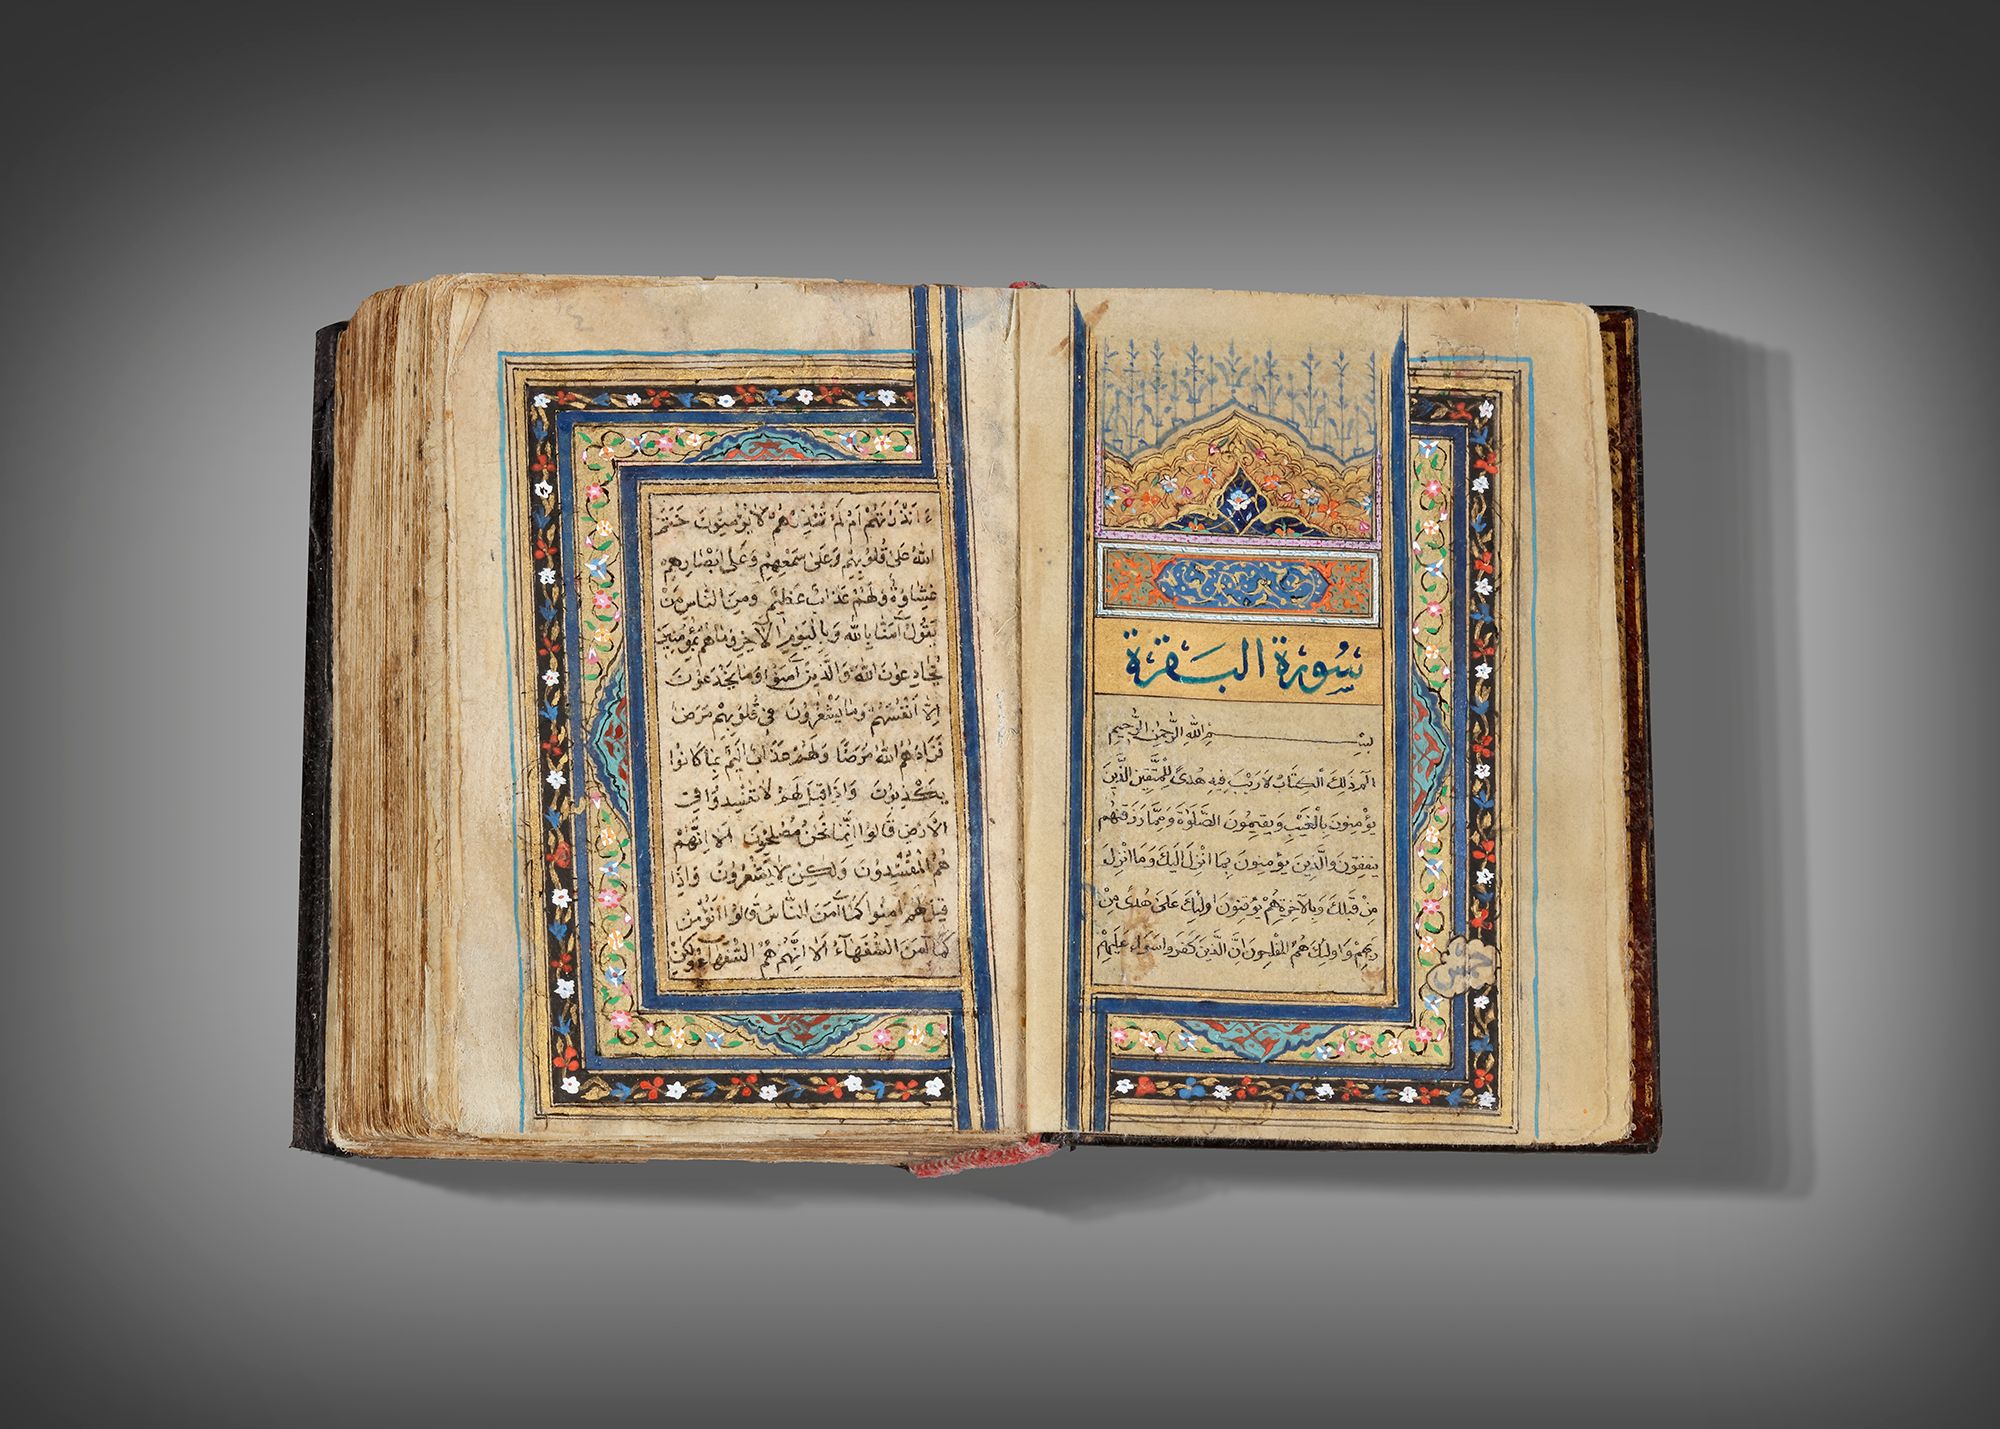 سُورَةُ البَقَرَة
بِسْمِ اللهِ الرَّحْمٰنِ الرَّحِيمِ
الم ذلِكَ الْكِتَابُ لَا رَيْبَ فِيهِ هُدىً لِلْمُتَّقِينَ الَّذِينَ
يُؤْمِنُونَ بِالْغَيْبِ وَيُقِيمُونَ الصَّلٰوةَ وَمِمَّا رَزَقْنٰهُمْ
يُنْفِقُونَ وَالَّذِينَ يُؤْمِنُونَ بِمَا اُنْزِلَ اِلَيْكَ وَمَا اُنْزِلَ
مِنْ قَبْلِكَ وَبِالْاخِرَةِ هُمْ يُوقِنُونَ اُولٰئِكَ عَلىٰ هُدىً مِنْ
رَبِّهِمْ وَاُولٰئِكَ هُمُ الْمُفْلِحُونَ اِنَّ الَّذِينَ كَفَرُوا سَوَاءٌ عَلَيْهِمْ
ءَاَنْذَرْتَهُمْ اَمْ لَمْ تُنْذِرْهُمْ لَا يُؤْمِنُونَ خَتَمَ
اللهُ عَلىٰ قُلُوبِهِمْ وَعَلىٰ سَمْعِهِمْ وَعَلىٰ اَبْصَارِهِمْ
غِشَاوَةٌ وَلَهُمْ عَذَابٌ عَظِيمٌ وَمِنَ النَّاسِ مَنْ
يَقُولُ آمَنَّا بِاللهِ وَبِالْيَوْمِ الْاخِرِ وَمَا هُمْ بِمُؤْمِنِينَ
يُخَادِعُونَ اللهَ وَالَّذِينَ آمَنُوا وَمَا يَخْدَعُونَ
اِلَّا اَنْفُسَهُمْ وَمَا يَشْعُرُونَ فِي قُلُوبِهِمْ مَرَضٌ
فَزَادَهُمُ اللهُ مَرَضًا وَلَهُمْ عَذَابٌ اَلِيمٌ بِمَا كَانُوا
يَكْذِبُونَ وَاِذَا قِيلَ لَهُمْ لَا تُفْسِدُوا فِي
الْاَرْضِ قَالُوا اِنَّمَا نَحْنُ مُصْلِحُونَ اَلَا اِنَّهُمْ
هُمُ الْمُفْسِدُونَ وَلٰكِنْ لَا يَشْعُرُونَ وَاِذَا
قِيلَ لَهُمْ اٰمِنُوا كَمَا آمَنَ النَّاسُ قَالُوا اَنُؤْمِنُ
كَمَا آمَنَ السُّفَهَآءُ اَلَا اِنَّهُمْ هُمُ السُّفَهَآءُ وَلٰكِنْ